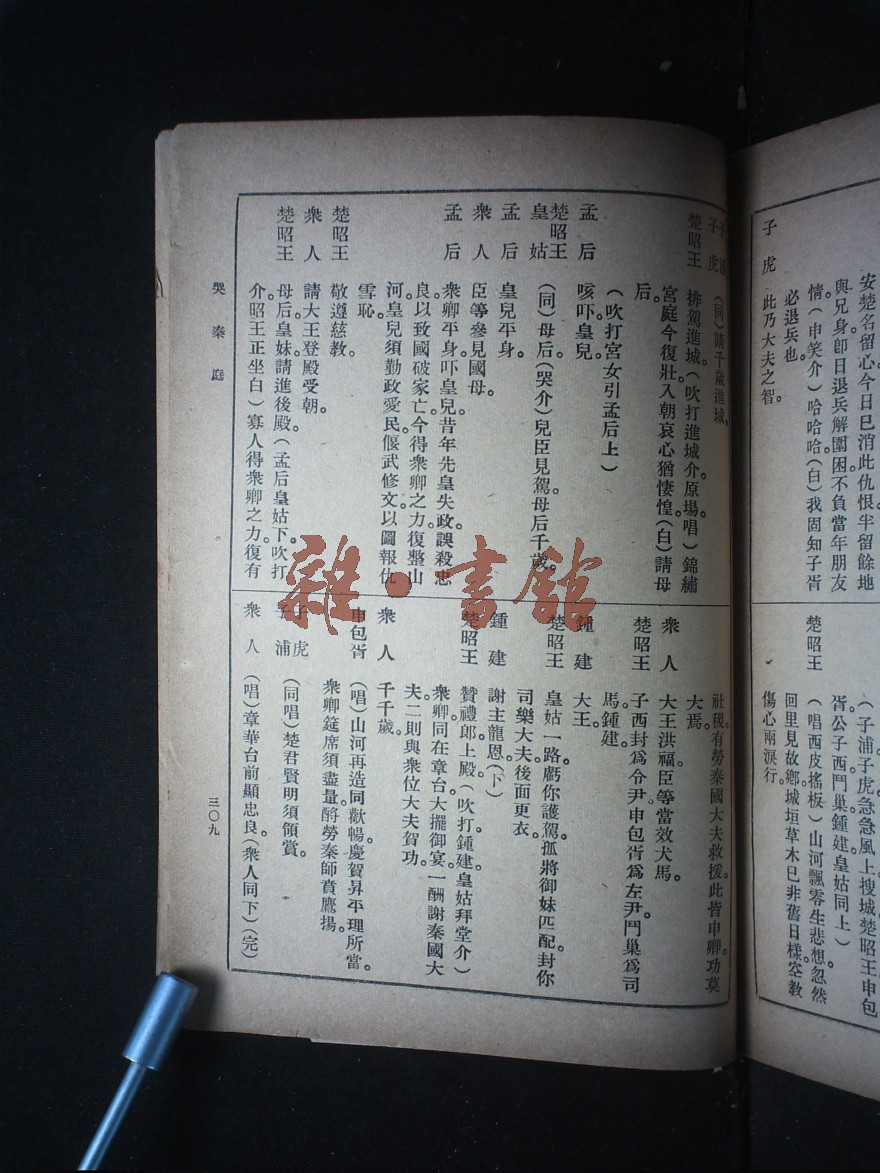 安楚名留心今日已消此仇恨半留餘地
與兄身卽日退兵解圍困不負當年朋友
情(申笑介)哈哈哈(白)我固知子胥
必退兵也
子虎 此乃大夫之智
(子浦子虎急急風上搜城楚昭王申包
胥公子西鬥巢鍾建皇姑同上)
楚昭王 (唱西皮搖板)山河飄零生悲想忽然
回里見故鄉城垣草木已非舊日樣空教
傷心兩淚行
子虎 (同)請千歲進城
楚昭王 排駕進城(吹打進城介原場唱)錦繡
宮庭今復壯入朝哀心猶悽惶(白)請母
后
(吹打宮女引孟后上)
孟后 咳吓皇兒
楚昭王 皇姑 (同)母后(哭介)兒臣見駕母后千歲
孟后 皇兒平身
衆人 臣等參見國母
孟后 衆卿平身吓皇兒昔年先皇失政誤殺忠
良以致國破家亡今得衆卿之力復整山
河皇兒須勤政愛民偃武修文以圖報仇
雪恥
楚昭王 敬遵慈教
衆人 請大王登殿受朝
楚昭王 母后皇妹請進後殿(孟后皇姑下吹打
介昭王正坐白)寡人得衆卿之力復有
社稷有勞秦國大夫救援此皆申卿功莫
大焉
衆人 大王洪福臣等當效犬馬
楚昭王 子西封爲令尹申包胥爲左尹鬥巢爲司
馬鍾建
鍾建 大王
楚昭王 皇姑一路虧你護駕孤將御妹匹配封你
司樂大夫後面更衣
鍾建 謝主龍恩(下)
楚昭王 贊禮郎上殿(吹打鍾建皇姑拜堂介)
衆卿同在章台大擺御宴一酬謝秦國大
夫二則與衆位大夫賀功
衆人 千千歲
申包胥 (唱)山河再造同歡暢慶賀昇平理所當
衆卿筵席須盡量酧勞秦師賁鷹揚
子虎 子浦 (同唱)楚君賢明須領賞
衆人 (唱)章華台前顯忠良(衆人同下)(完)
哭秦庭
三〇九
雜·書館